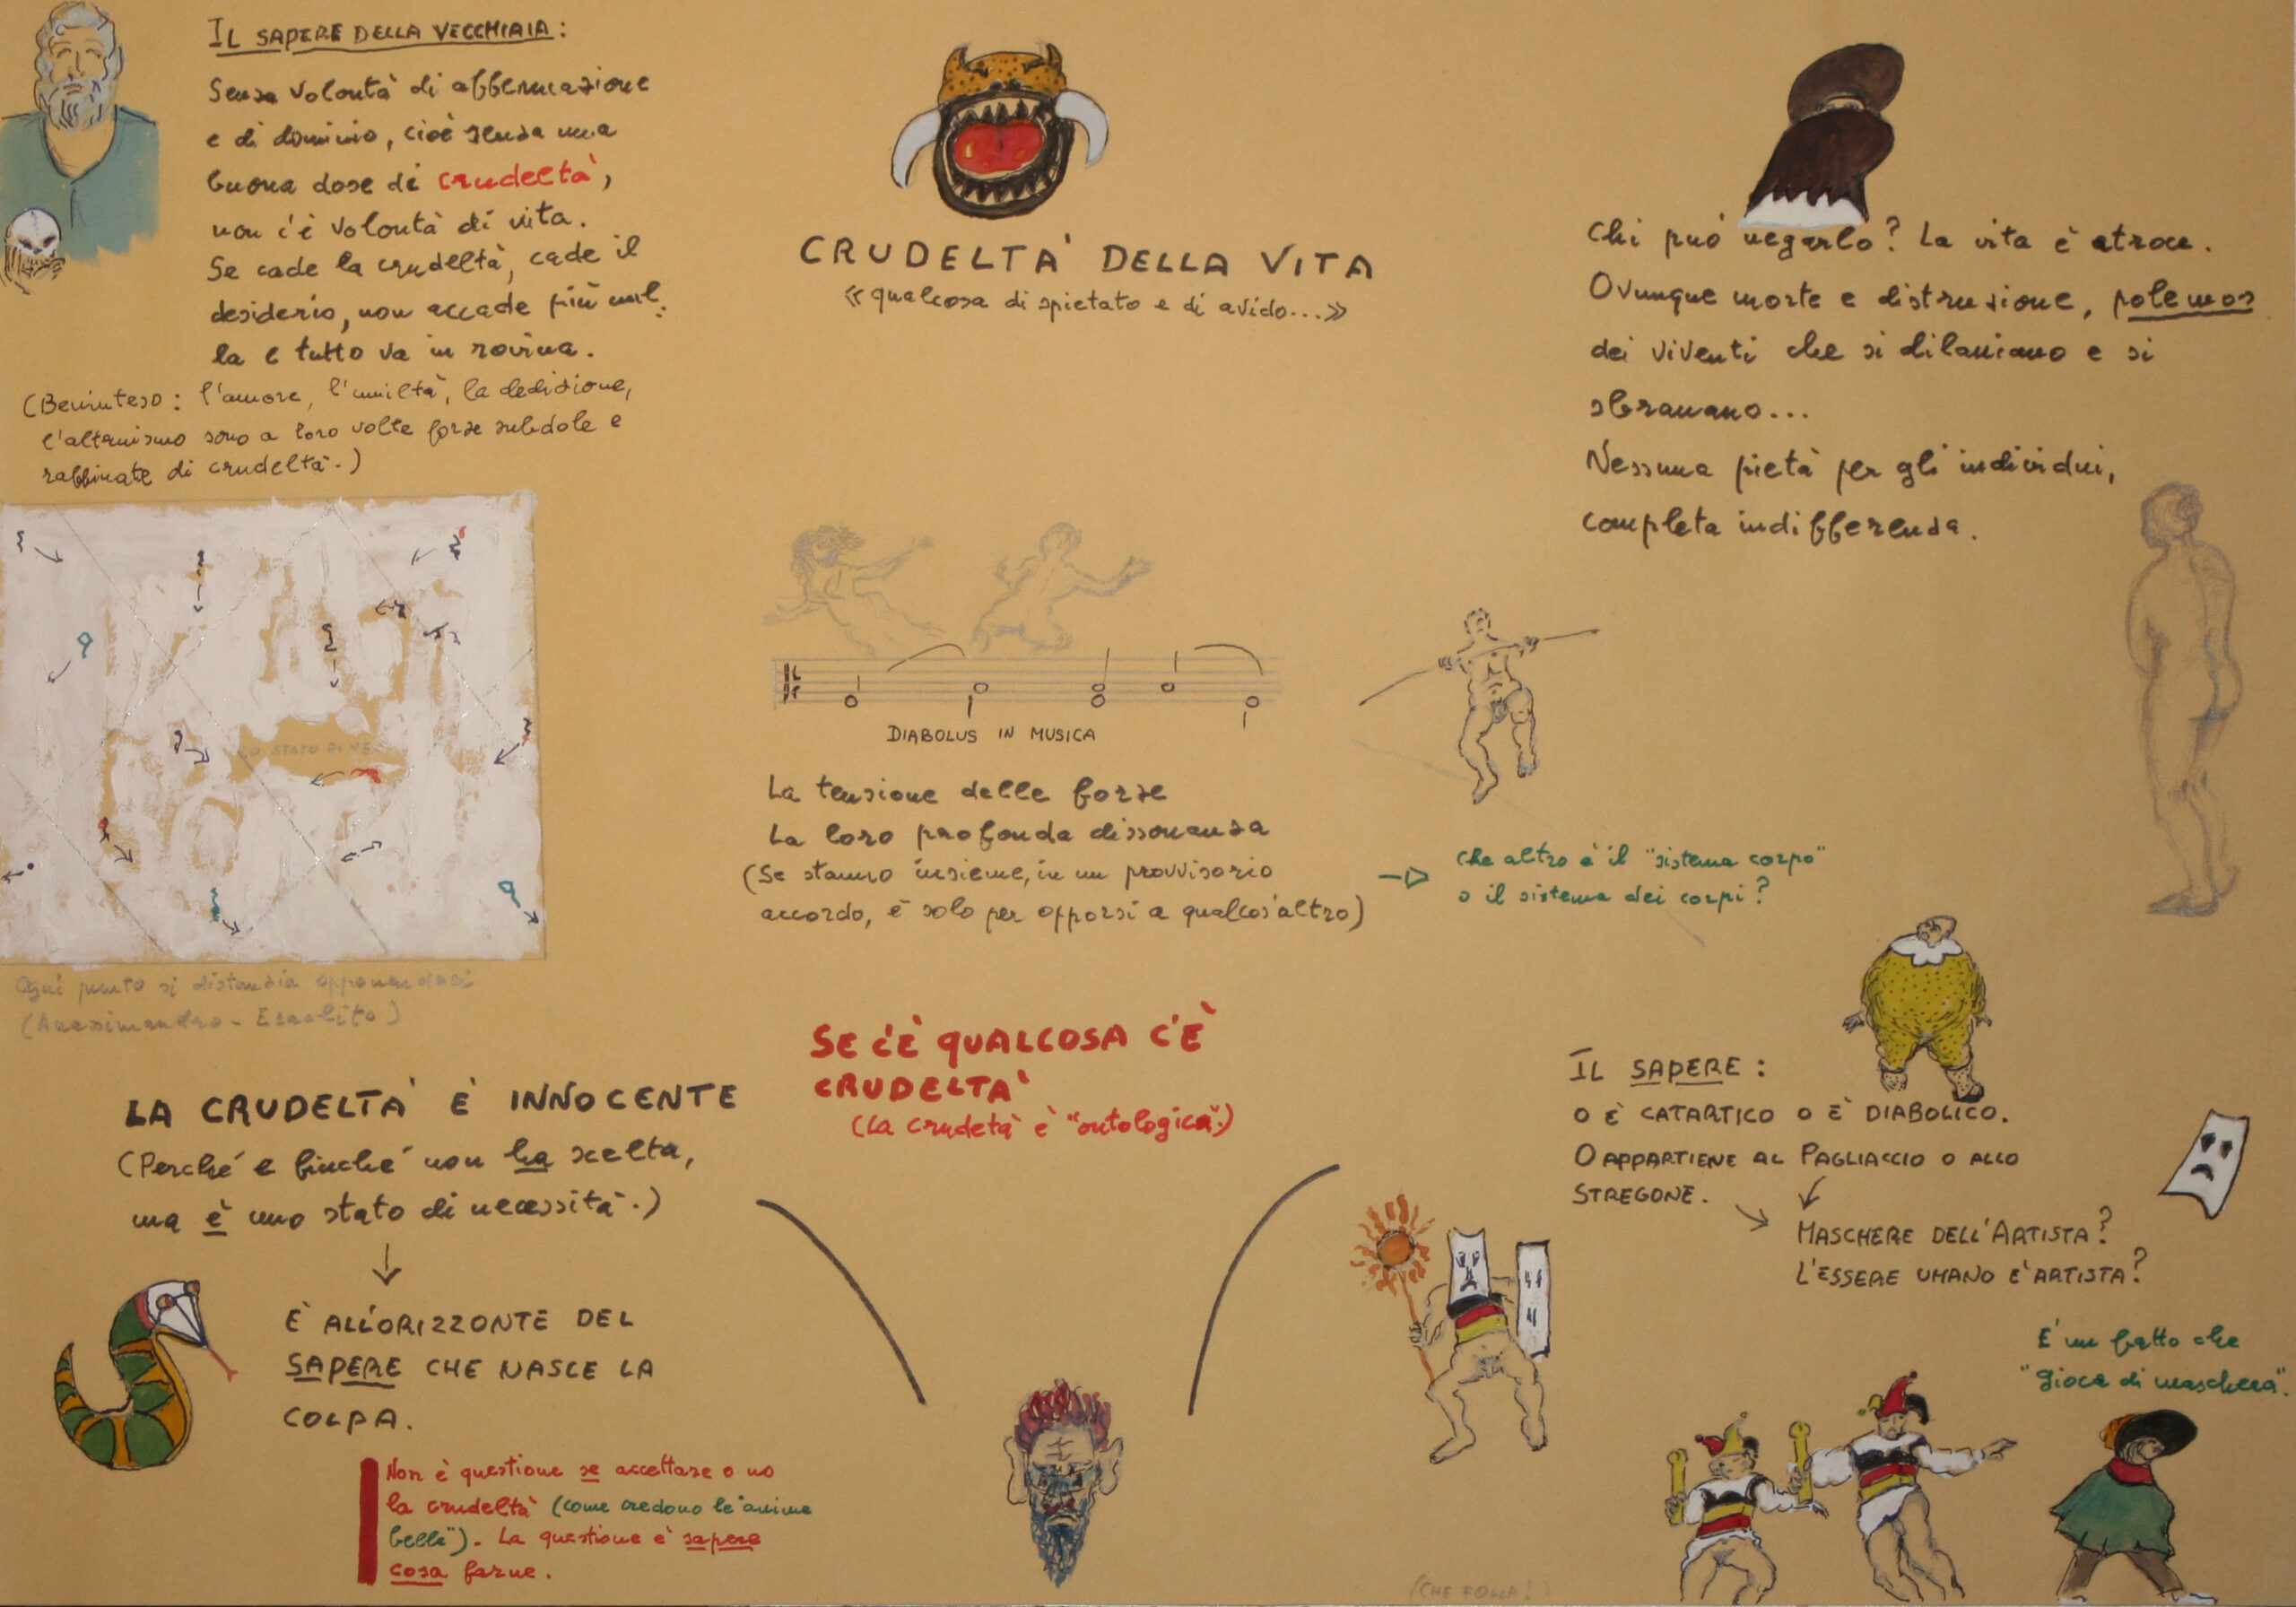 IL SAPERE DELLA VECCHIAIA:
Senza volontà di affermazione
e di dominio, cioè senza una
buona dose di crudeltà,
non c'è volontà di vita.
Se cade la crudeltà, cade il
desiderio, non accade più nul:
la e tutto va in rovina.
(Beninteso: l'amore, l'umiltà, la dedizione,
l'altruismo sono a loro volte forze subdole e
raffinate di crudeltà.)
LO STATO DI
Ogni punto si distanzia opponendosi
(Anassimandro - Eraclito)
LA CRUDELTA' È INNOCENTE
(Perché e finché non ha scelta,
ma è uno stato di necessità.)
È ALL'ORIZZONTE DEL
SAPERE CHE NASCE LA
COLPA.
Non è questione se accettare o no
la crudeltà (come credono le "anime
belle"). La questione è sapere
cosa farne.
CRUDELTA' DELLA VITA
«qualcosa di spietato e di avido...»
DIABOLUS IN MUSICA
La tensione delle forze
La loro profonda dissonanza
(Se stanno insieme, in un provvisorio
accordo, è solo per opporsi a qualcos'altro)
che altro è il "sistema corpo"
o il sistema dei corpi?
SE C'È QUALCOSA C'È
CRUDELTA'
(La crudetà è "ontologica".)
Chi può negarlo? La vita è atroce.
Ovunque morte e distruzione, polemos
dei viventi che si dilaniano e si
sbranano...
Nessuna pietà per gli individui,
completa indifferenza.
IL SAPERE:
O È CATARTICO O È DIABOLICO.
O APPARTIENE AL PAGLIACCIO O ALLO
STREGONE.
MASCHERE DELL'ARTISTA?
L'ESSERE UMANO E' ARTISTA?
E' un fatto che
"gioca di maschera".
(CHE FOLLA!)